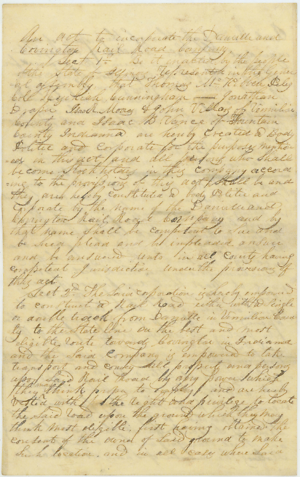 An Act to incorporate the Danville and
Covington Rail Road Company
Sect 1st Be it enacted by the people
of the State of Illinois Represented in the General
Assembly, That
Cunningham
and John
County and Isaac of Fountain
County Indianna are hereby Created a Body
Politic and Corporate for the purposes
in this act and all persons who shall
become Stock holders in this Company accord
ing to the provisions of this act shall be and
they are hereby constituted a Body Politic and
Corporate by the name of the Danville and
Covington Rail Road Company and by
that name shall be competent to sue and
be sued plead and be impleaded answer
and be answered unto in all courts having
competent Jurisdiction under the provisions of
this act
Sect 2d The said corporation is hereby empowered
to construct a Rail Road with a single
or double track from Danville in Vermilion Coun
ty to the State line on the best and most
eligible route towards Covington in Indiana
and the said Company is empowered to take
transport and carry all property and persons
upon said Rail Road by any power which
they think proper to apply and are hereby
vested with the right and privilege to locate
the said road upon the ground which they may
think most eligible, first having obtained the
consent of the owner of said ground to make
such location, and in all cases where such